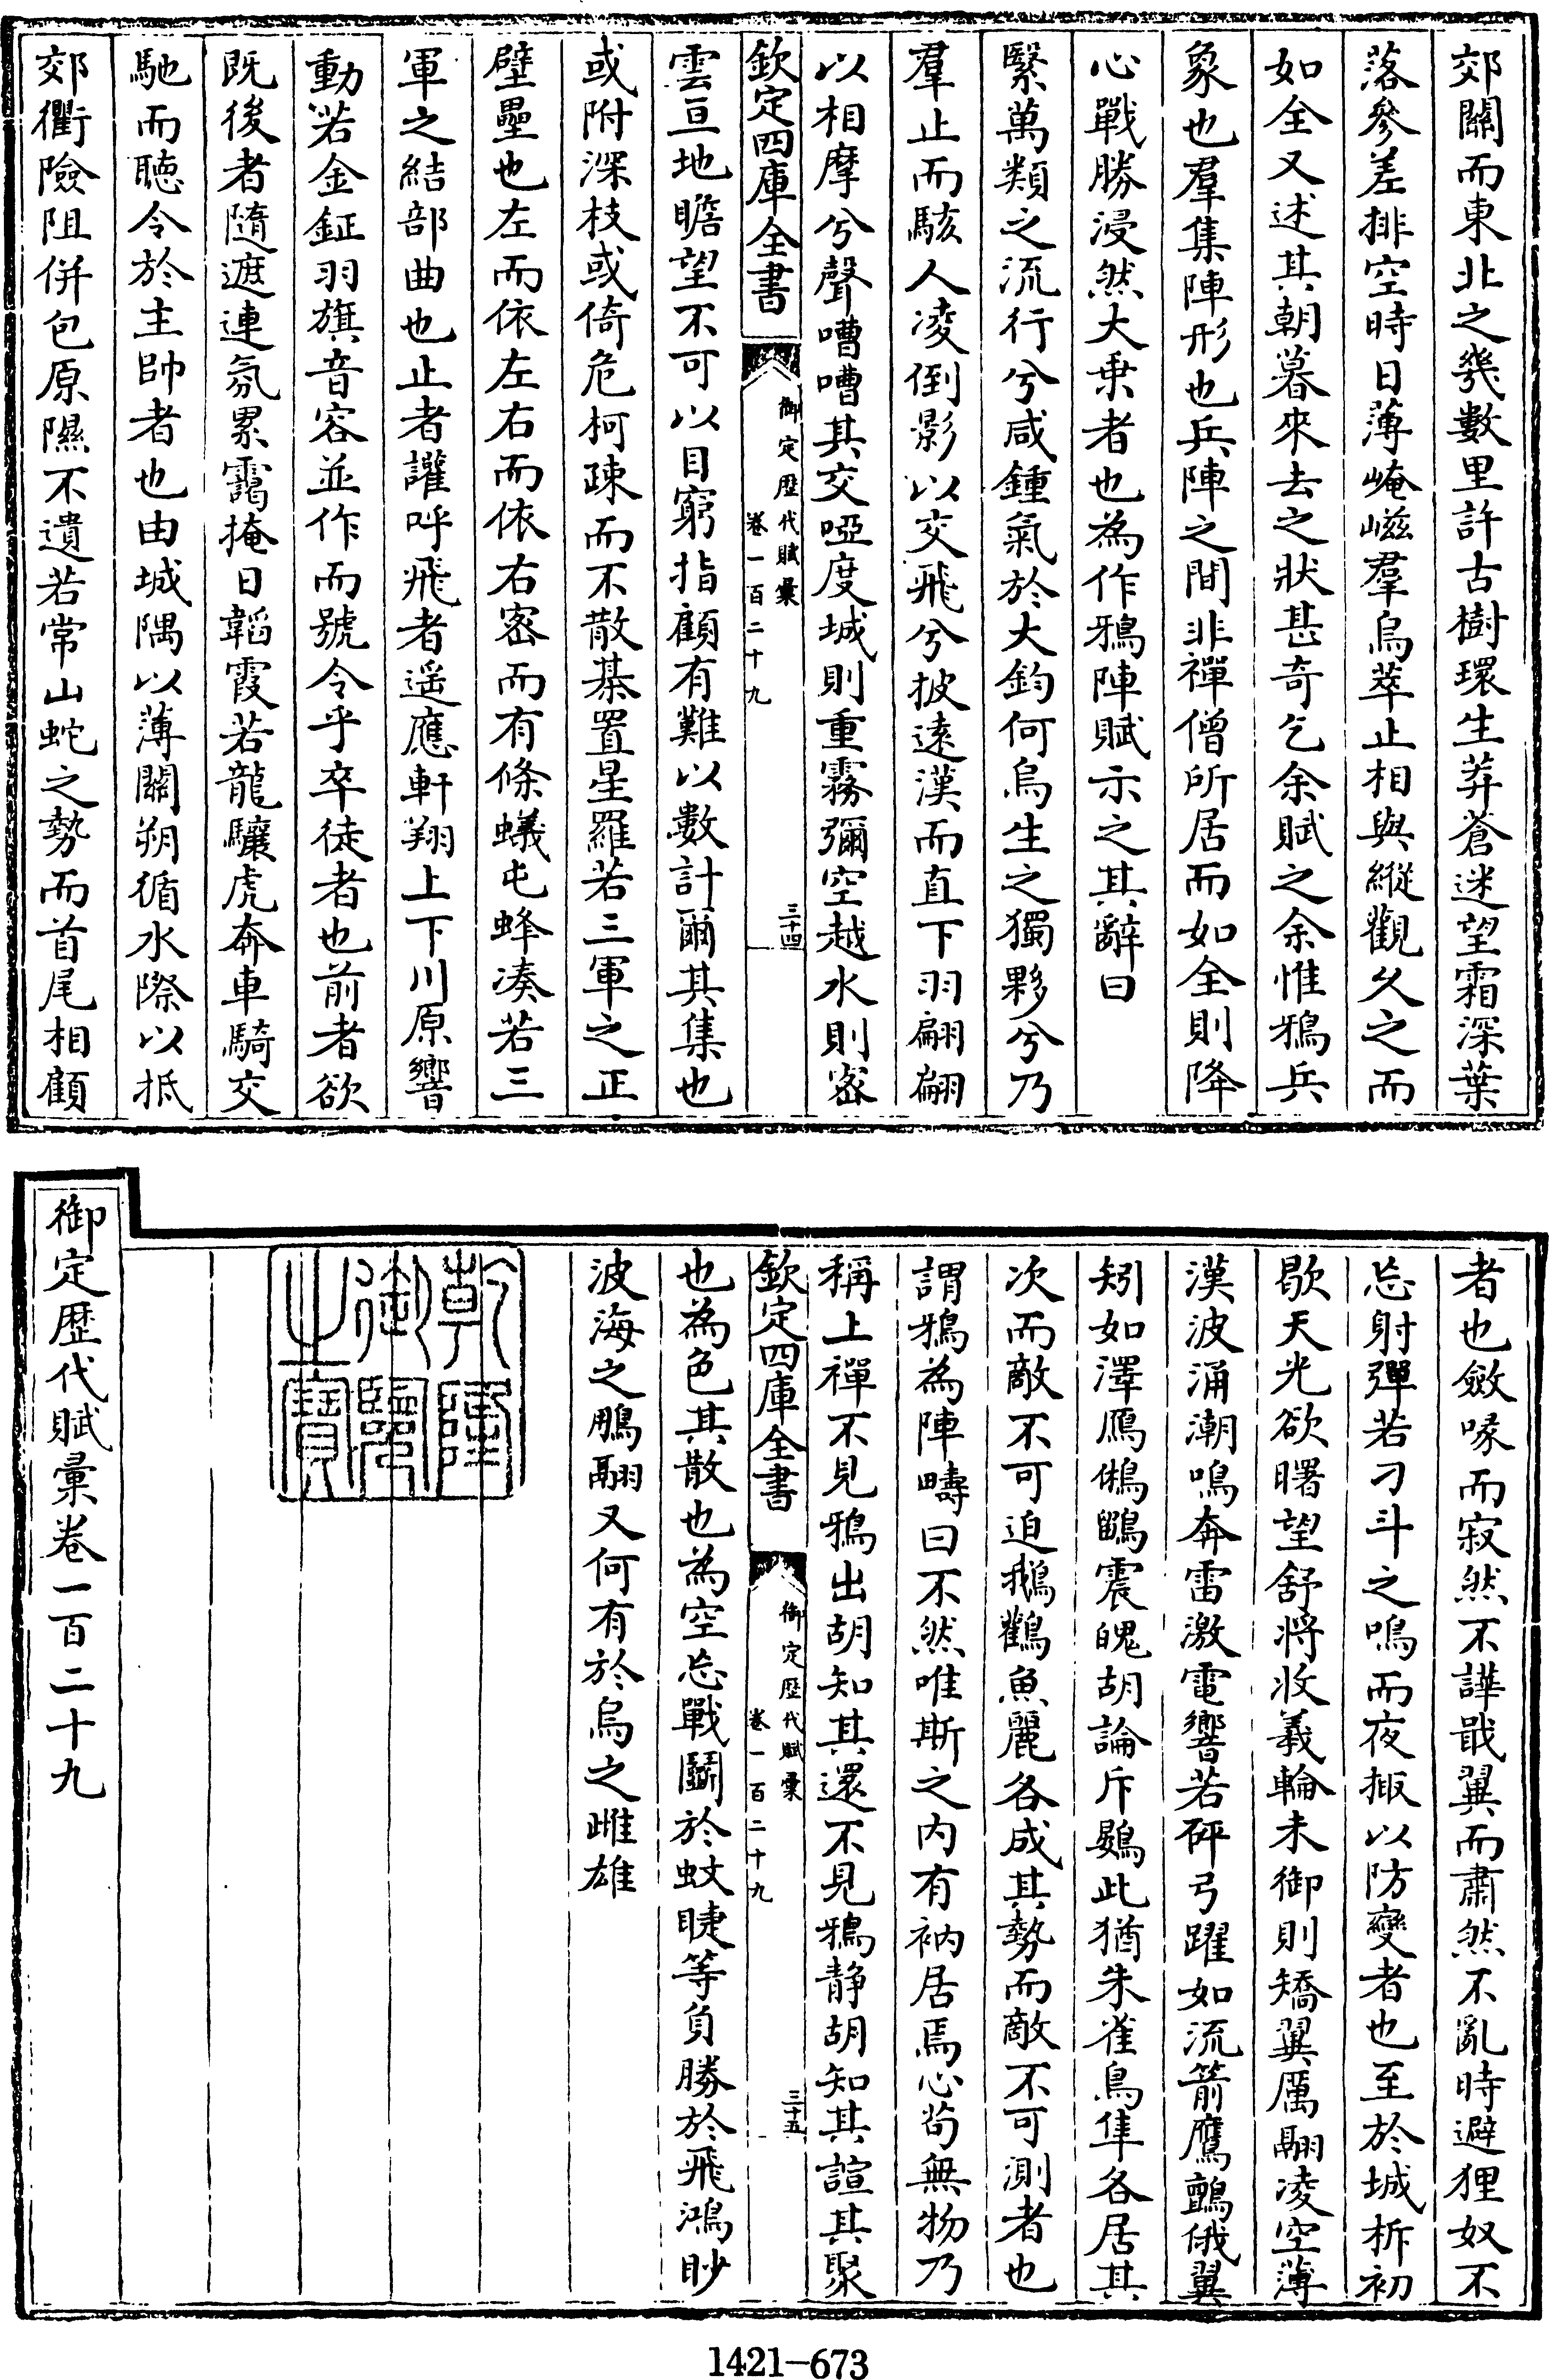 郊關而東北之幾數里許古樹環生莽蒼迷望霜深葉
落參差排空時日薄崦嵫羣烏萃止相與縱觀久之而
如全又述其朝暮來去之狀甚奇乞余賦之余惟鴉兵
象也羣集陣形也兵陣之間非禪僧所居而如全則降
心戰勝浸然大乗者也為作鴉陣賦示之其辭曰
緊萬類之流行兮咸鍾氣於大鈞何烏生之獨夥兮乃
羣止而駭人凌倒影以交飛兮披遠漢而直下羽翩翩
以相摩兮聲嘈嘈其交啞度城則重霧彌空越水則密
欽定四庫全書
御定歴代賦彙
卷一百二十九
三十四
雲亘地瞻望不可以目窮指顧有難以數計爾其集也
或附深枝或倚危柯疎而不散棊置星羅若三軍之正
壁壘也左而依左右而依右密而有條蟻屯蜂凑若三
軍之結部曲也止者讙呼飛者遥應軒翔上下川原響
動若金鉦羽旗音容並作而號令乎卒徒者也前者欲
既後者隨遮連氛累靄掩日韜霞若龍驤虎奔車騎交
馳而聽令於主帥者也由城隅以薄關朔循水際以抵
郊衢險阻併包原隰不遺若常山蛇之勢而首尾相顧
者也斂喙而寂然不譁戢翼而肅然不亂時避狸奴不
忘射彈若刁斗之鳴而夜掫以防變者也至於城柝初
歇天光欲曙望舒將收羲輪未御則矯翼厲翮凌空薄
漢波涌潮鳴奔雷激電響若砰弓躍如流箭鷹鸇俄翼
矧如澤鴈鵂鶹震魄胡論斥鷃此猶朱雀鳥隼各居其
次而敵不可迫鵝鸛魚麗各成其勢而敵不可測者也
謂鴉為陣疇曰不然唯斯之内有衲居焉心茍無物乃
稱上禪不見鴉出胡知其還不見鴉静胡知其諠其聚
欽定四庫全書
御定歴代賦彙
卷一百二十九
三十五
也為色其散也為空忘戰鬭於蚊睫等負勝於飛鴻眇
波海之鵬翮又何有於烏之雌雄
乾隆御覽之寶
御定歴代賦彙卷一百二十九
1421-673